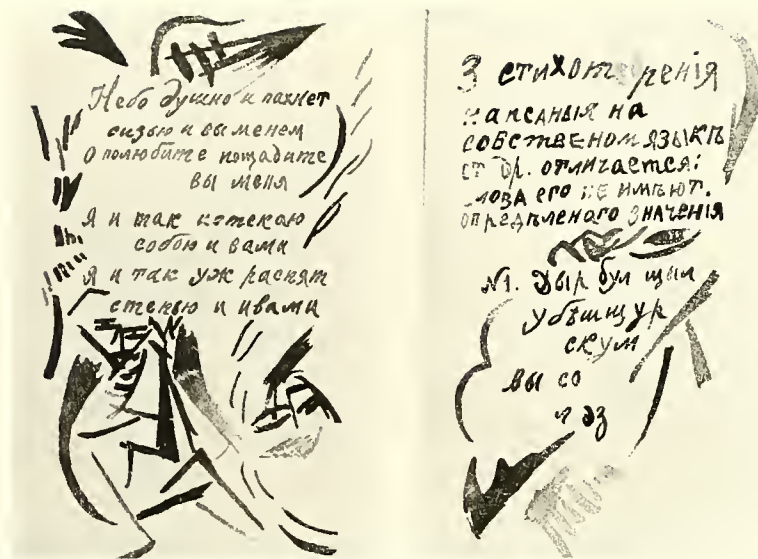 Небо душно и пахнет
сизью и выменем
О полюбите пощадите
вы меня
Я и так истекаю
собою и вами
Я и так уж распят
степью и ивами
3 стихотворенія
написаныя на
собственом языкѣ
от др. отличается:
слова его не имѣют.
опредѣленаго значенія
№1. Дыр бул щыл
убѣшщур
скум
вы со
л эз